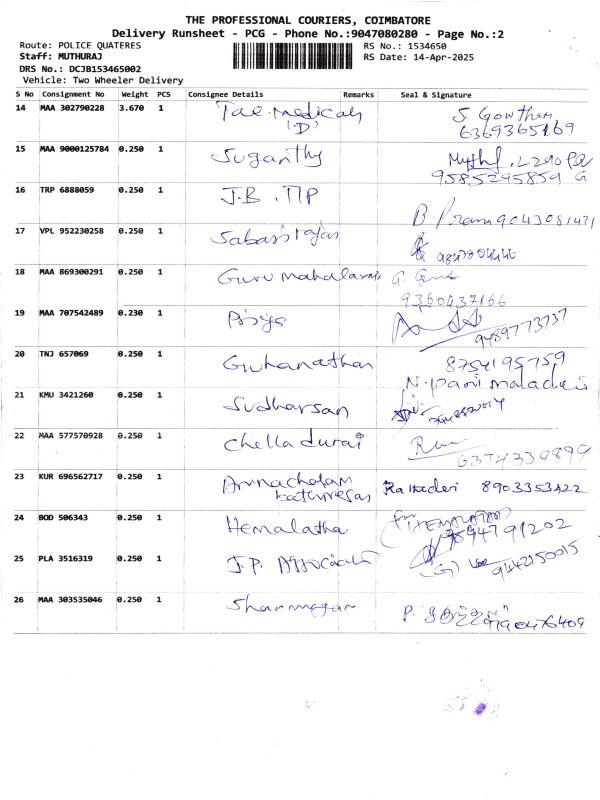 THE PROFESSIONAL COURIERS, COIMBATORE
Delivery Runsheet - PCG - Phone No.:9047080280 - Page No.:2
Route: POLICE QUATERES RS No.: 1534650
Staff: MUTHURAJ RS Date: 14-Apr-2025
DRS No.: DCJB153465002
Vehicle: Two Wheeler Delivery
S No Consignment No Weight PCS Consignee Details Remarks Seal & Signature
14 MAA 302790228 3.670 1 Tae. Medicals S. Gowtham
(D) 6369365169
15 MAA 9000125784 0.250 1 Suganthy
9585295859
16 TRP 6888059 0.250 1 J.B.
B. 9043081471
17 VPL 952230258 0.250 1
18 MAA 869300291 0.250 1 Guru mahalaxmi G.
9360437166
19 MAA 707542489 0.230 1 Priya
9489773737
20 TNJ 657069 0.250 1 Guhanathan 8754195759
21 KMU 3421260 0.250 1 Sudharsan
22 MAA 577570928 0.250 1 Chelladurai
6374330899
23 KUR 696562717 0.250 1 Arunachalam 8903353422
24 BOD 506343 0.250 1 Hemalatha for HEMALATHA
9594791202
25 PLA 3516319 0.250 1 J.P. Associates 9442150015
26 MAA 303535046 0.250 1 Shanmugam P.